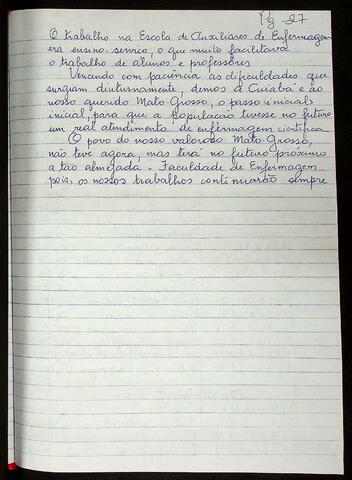 Pg. 27
O trabalho na Escola de Auxiliares de Enfermagem
era ensino-serviço, o que muito facilitava
o trabalho de alunos e professores
Vencendo com paciência as dificuldades que
surgiam diuturnamente, demos a Cuiabá e ao
nosso querido Mato-Grosso, o passo inicial
inicial, para que a população tivesse no futuro
um real atendimento de enfermagem científica
O povo do nosso valoroso Mato-Grosso,
não teve agora, mas terá no futuro próximo
a tão almejada - Faculdade de Enfermagem
pois, os nossos trabalhos continuarão sempre